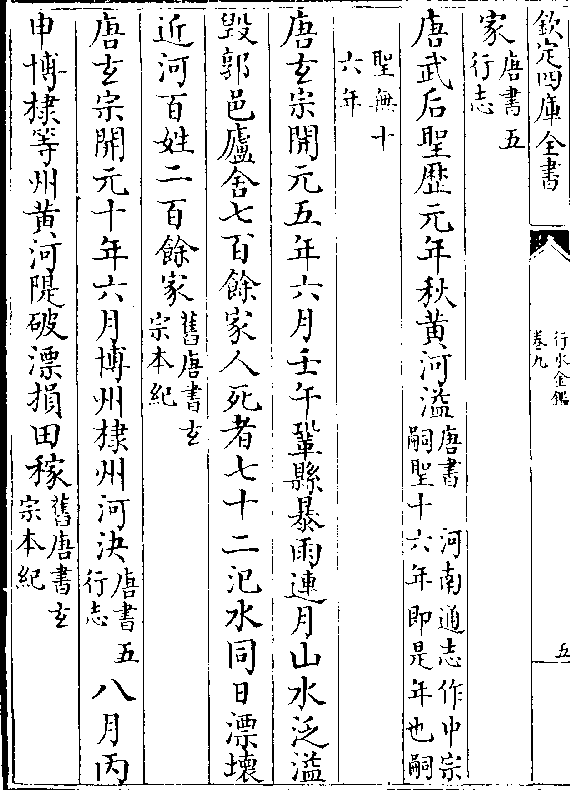 欽定四庫全書
行水金鑑
卷九
五
家唐書五行志
唐武后聖歷元年秋黃河溢唐書　河南通志作中宗嗣聖十六年即是年也嗣
聖無十六年
唐玄宗開元五年六月壬午鞏縣暴雨連月山水泛溢
毀郭邑廬舍七百餘家人死者七十二汜水同日漂壊
近河百姓二百餘家舊唐書玄宗本紀
唐玄宗開元十年六月博州棣州河決唐書五行志　八月丙
申博棣等州黃河隄破漂損田稼舊唐書玄宗本紀